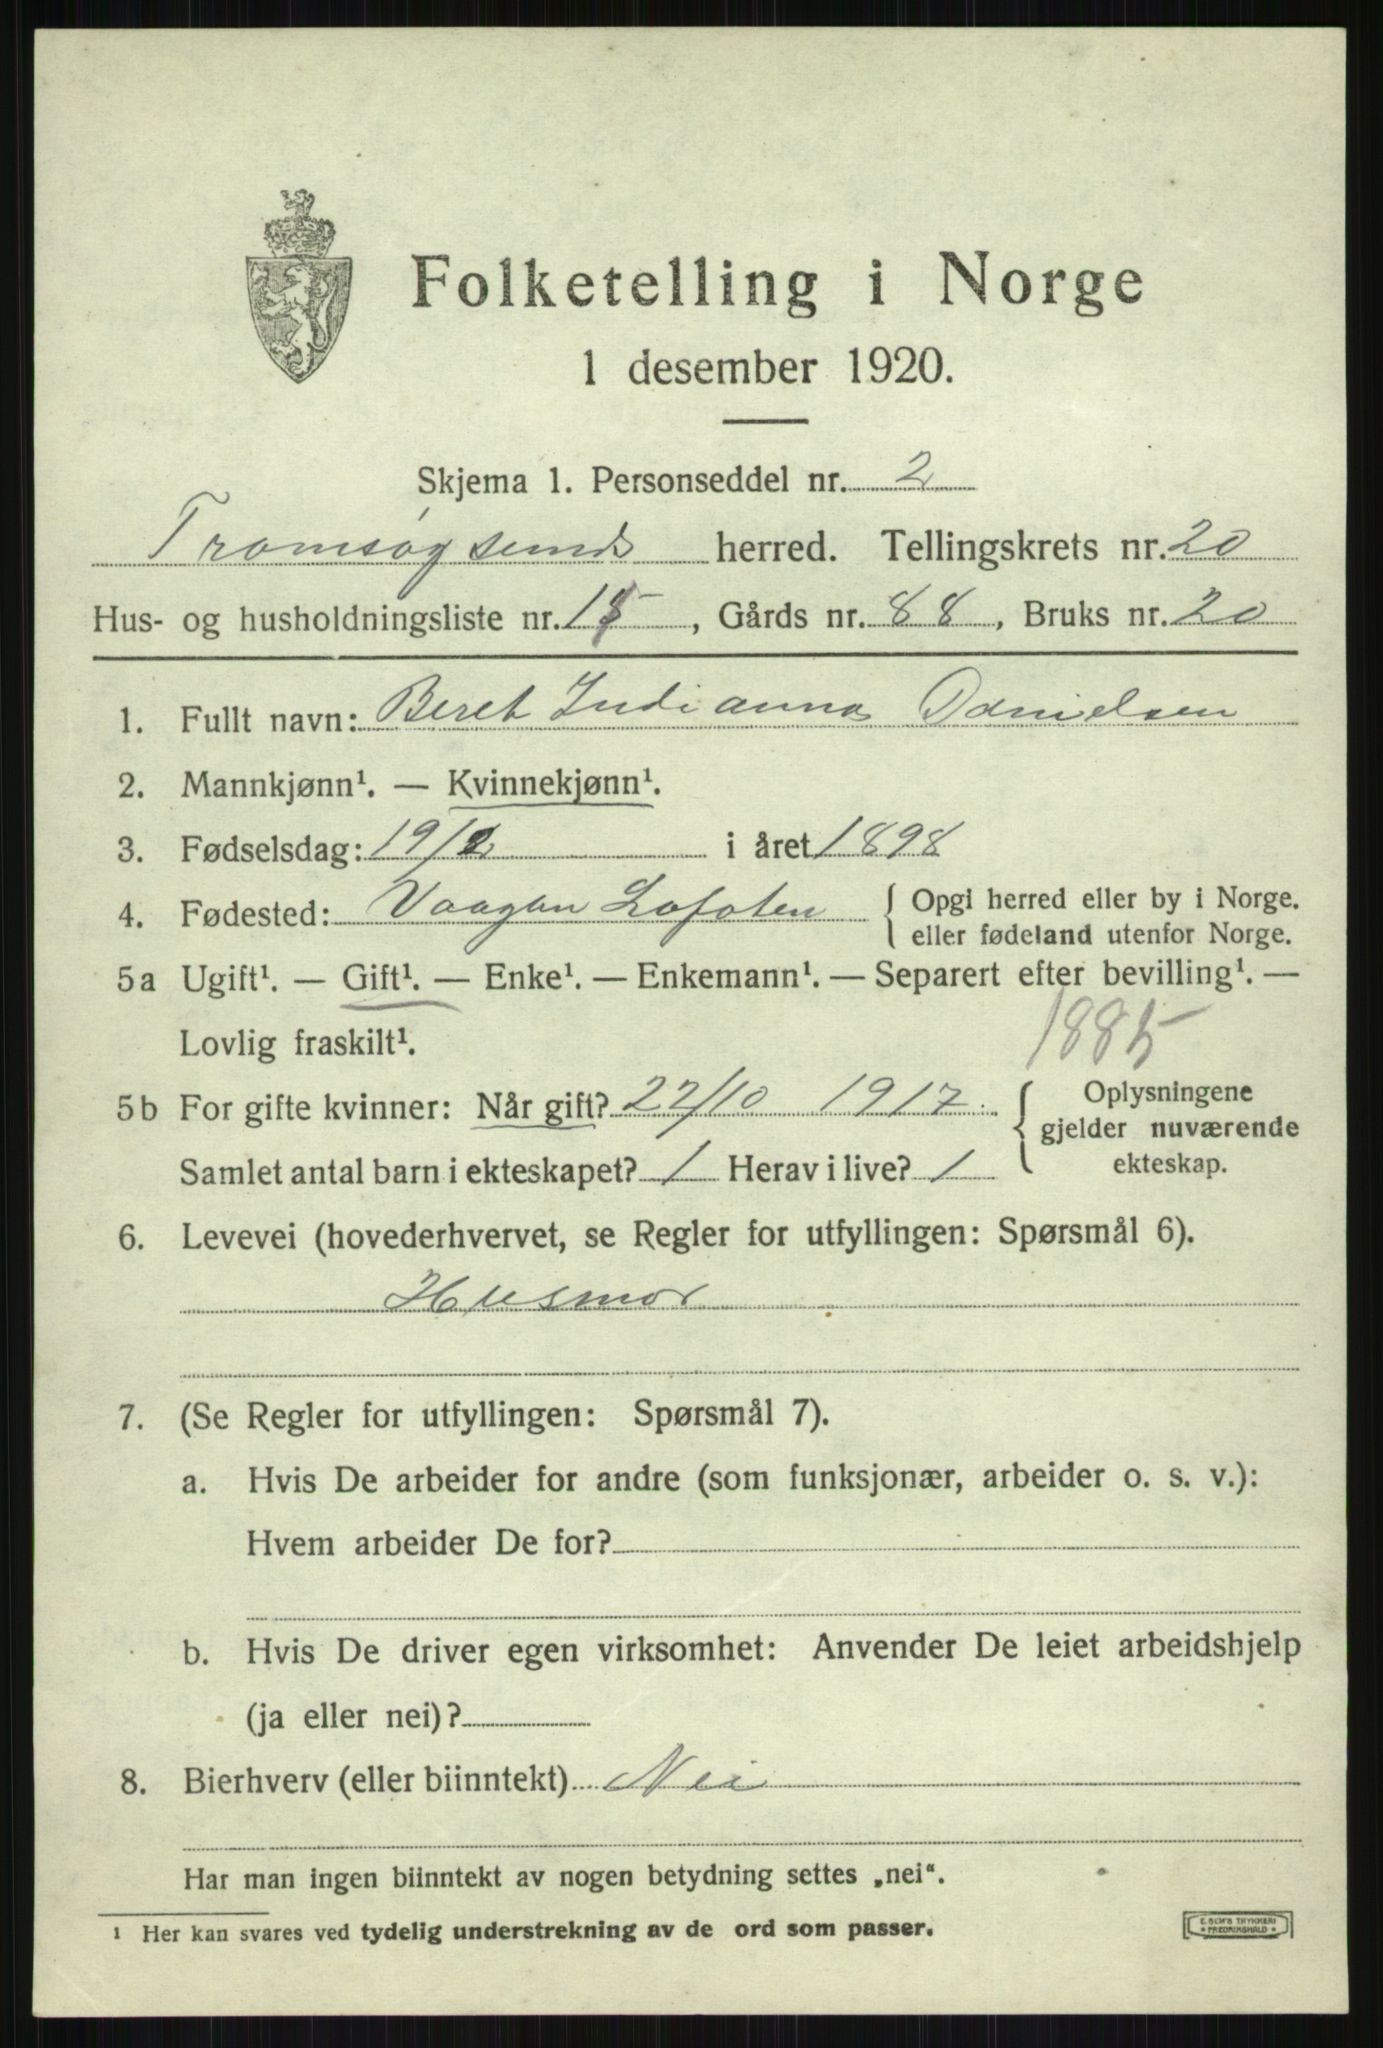 Folketelling i Norge
1 desember 1920.
Skjema 1. Personseddel nr. 2
Tromsøysund herred. Tellingskrets nr. 20
Hus- og husholdningsliste nr. 15, Gårds nr. 88, Bruks nr. 20
1. Fullt navn: Beret Indianna Danielsen
2. Mannkjønn¹. — Kvinnekjønn¹.
3. Fødselsdag: 19/2 i året 1898
4. Fødested: Vaagan Lofoten { Opgi herred eller by i Norge.
eller fødeland utenfor Norge.
5a Ugift¹. — Gift¹. — Enke¹. — Enkemann¹. — Separert efter bevilling¹. —
Lovlig fraskilt¹. 1885
5b For gifte kvinner: Når gift? 22/10 1917. { Oplysningene
gjelder nuværende
Samlet antal barn i ekteskapet? 1 Herav i live? 1 ekteskap.
6. Levevei (hovederhvervet, se Regler for utfyllingen: Spørsmål 6).
Husmor
7. (Se Regler for utfyllingen: Spørsmål 7).
a. Hvis De arbeider for andre (som funksjonær, arbeider o. s. v.):
Hvem arbeider De for?
b. Hvis De driver egen virksomhet: Anvender De leiet arbeidshjelp
(ja eller nei)?
8. Bierhverv (eller biinntekt) Nei
Har man ingen biinntekt av nogen betydning settes „nei“.
¹ Her kan svares ved tydelig understrekning av de ord som passer.
E. SEM'S TRYKKERI
* FREDRIKSHALD *